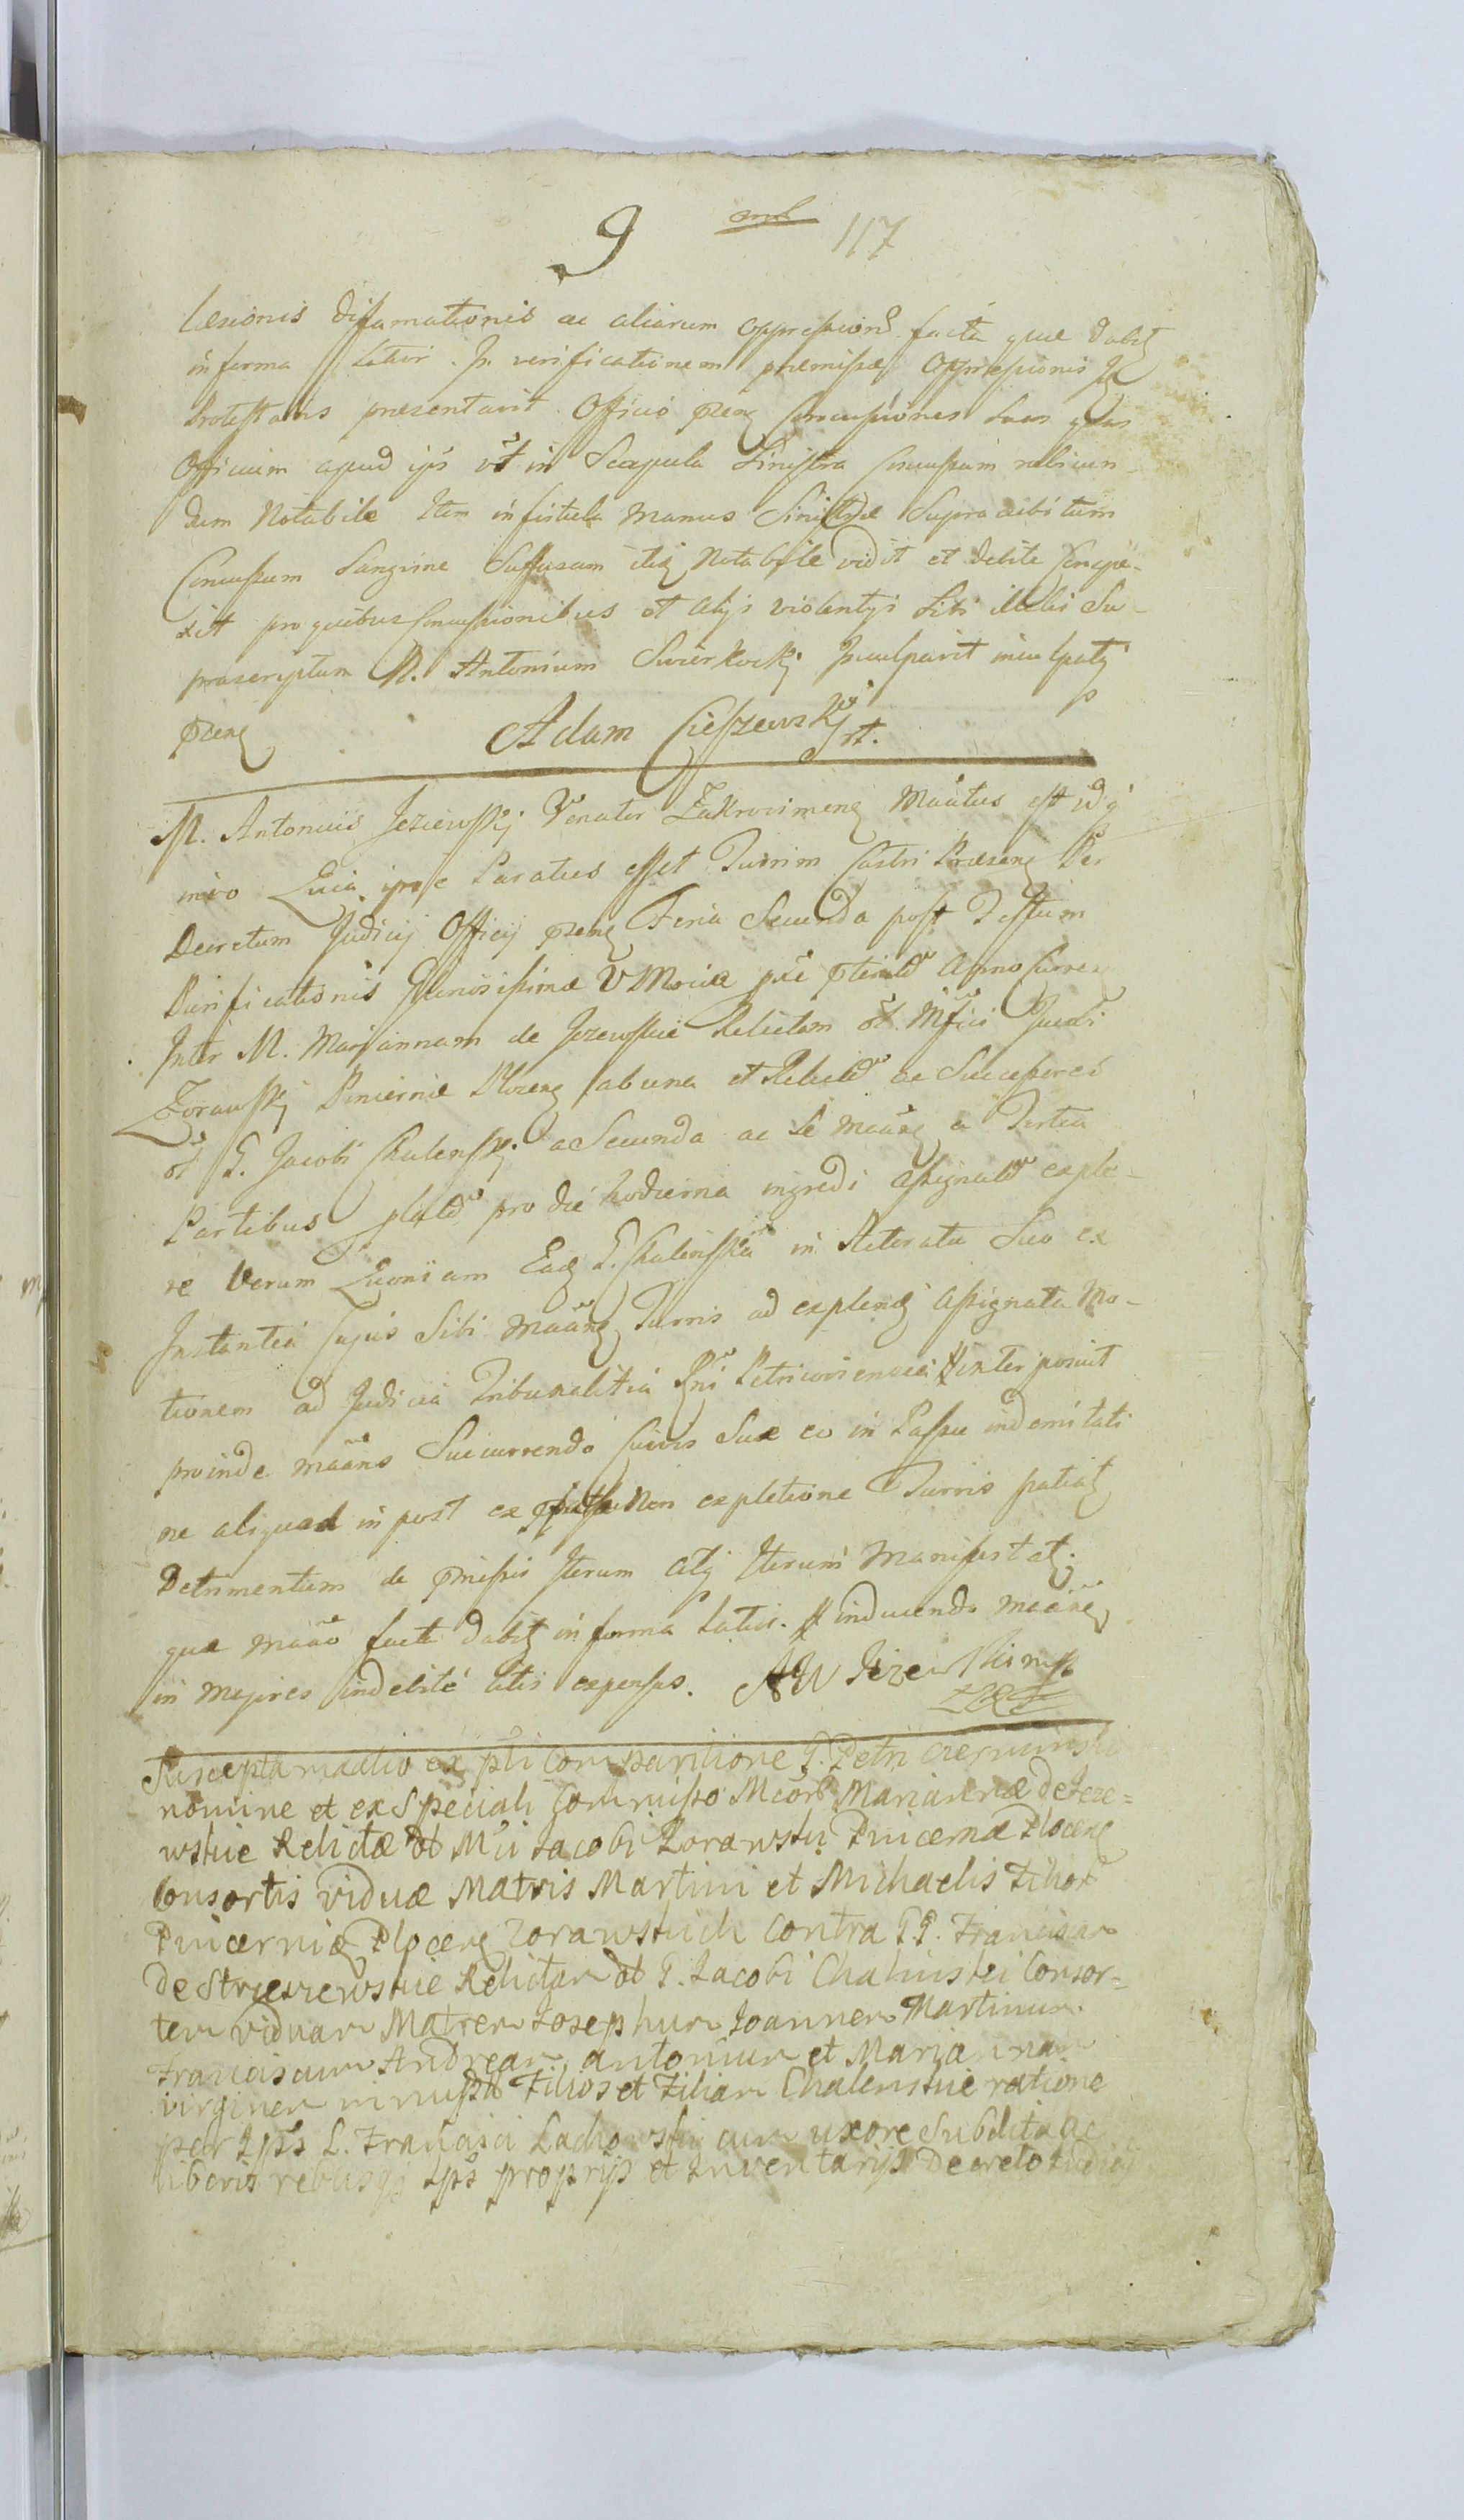 9 117
Læsionis diffamationis ac aliarum oppression facta quæ dabit
in forma Latior. In verificationem præmissæ Oppressionis
Protestans presentavit Officio præs concussiones suas quas
Officium apud ips ut in Scapula Sinistra concussum rubicun
dum Notabile Item in fistula Manus Sinistræ Supra cubitum
Concussum Sangvine Suffusum itq Notabile vidit et debite conspe-
xit pro quibus concussionibus et alijs violentijs Sibi illatis Su-
prascriptum N. Antonium Swierkocki Inculpavit inculpatq
præns Adam Cieszewski
M. Antonius Jeziewskj Venator Zakrocimens Maātus est idq
ideo Quia ipse Paratus esset Turrim Castri Præsens Per
Decretum Judicij Officij præns Feria Secunda post Festum
Purificationis Gloriosissimæ V Mariæ Anno curren
Inter M. Mariannam de Jezewskie Relictam ol. Mfici Jacobi
Zorawskj Pincernæ Plocens ab una et Relict ac Successores
ol G. Jacobi Chalenskj a Secunda ac Se maāns a Tertia
Partibus pro die hodierna ingredi assignat exple-
re Verum Quoniam Eadq G. Chalenska in Reteratu Suo ex
Instantia cujus Sibi maānti Turris ad explend assignata Mo-
tionem ad Judicia Tribunalitia Rni Petricoviensia interposuit
proinde maāns Succurrendo juris Suæ eo in Passu indemnitati
ne aliquod in post ex non expletione Turris patiat
Detrimentum de præmissis Iterum atq Iterum Manifestat.
quæ maāo facta dabit in forma Latior. inducendo maānt
in Majores indebité litis expensas. AW Jezewski mp
Suscepta maātio ex psti Comparitione G. Petri Czerminski
nomine et ex Speciali Commisso Mcorum Mariannæ de Jeze=
wskie Relictæ ol Mci Jacobi Zorawski Pincernæ Plocens
Consortis viduæ Matris Martini et Michaelis Filior
Pincernid Plocens Zorawskich contra GG. Franciscam
de Strzeszewskie Relictam ol G. Jacobi Chalinski Consor=
tem viduam Matrem Josephum Joannem Martinum
Franciscum Andream Antonium et Mariannam
virginem Filios et Filiam Chalenskie ratione
per Ips L. Francisci Lachowski cum uxore Subdita ac
liberis rebusqj Ips proprijs et Inventarijs Decreto Judicij